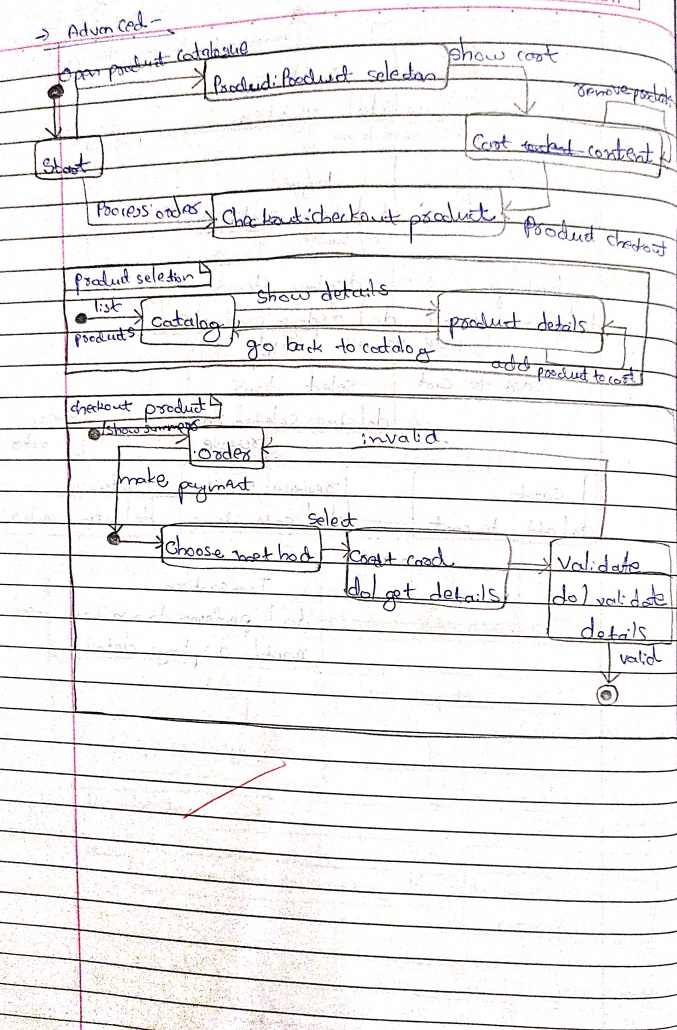 → Advanced -
Open product catalogue
Product:Product selection
show cart
remove product
Start
Cart content
Process order
Checkout:checkout product
Product checkout
product selection
list
products
catalog
show details
product details
go back to catalog
add product to cart
checkout product
show summary
order
invalid.
make payment
select
Choose method
Credit card
do/ get details
Validate
do/ validate
details
valid